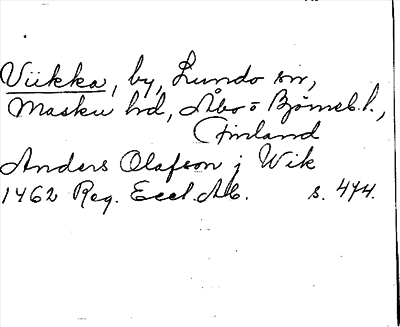 Viikka, by, Lundo sn,
Masku hd, Åbo = Björneb. l.,
Finland
Anders Olafson j Wik
1462 Reg. Eccl. Ab. s. 474.